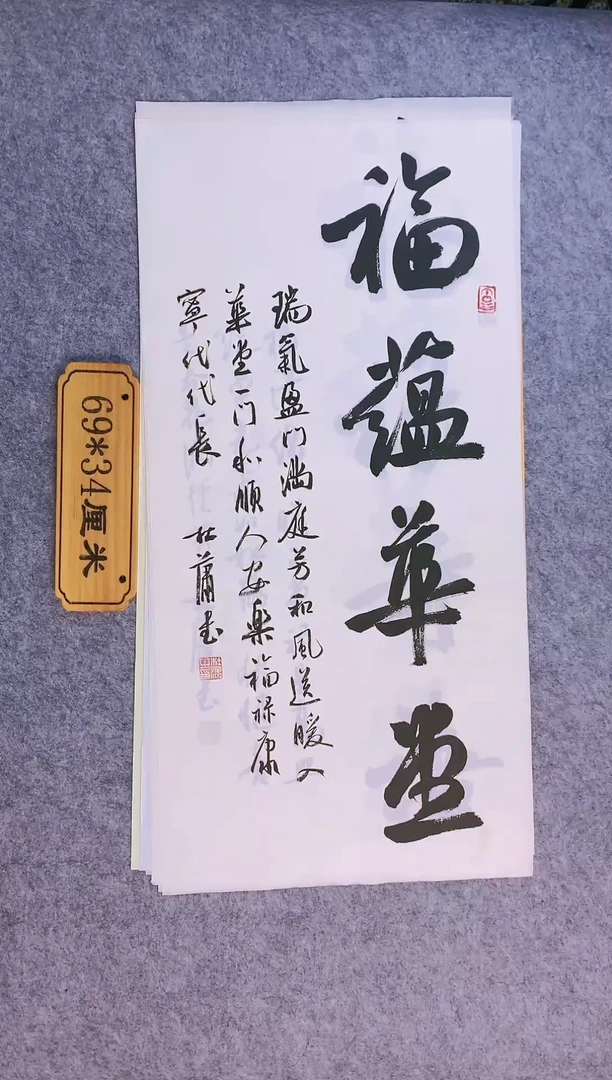 福蕴華堂
瑞氣盈门满庭芳和風送暖入
華堂一门和順人安樂福禄康
寧代代長
杜蕭书
69*34厘米